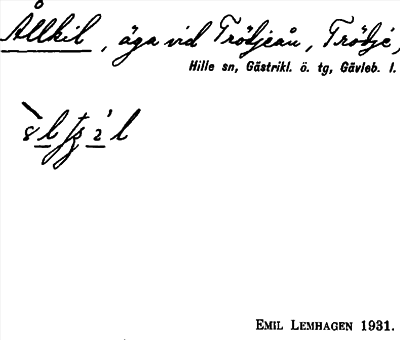 Ållkil, äga vid Trödjeån, Trödje,
Hille sn, Gästrikl. ö. tg, Gävleb. l.
EMIL LEMHAGEN 1931.